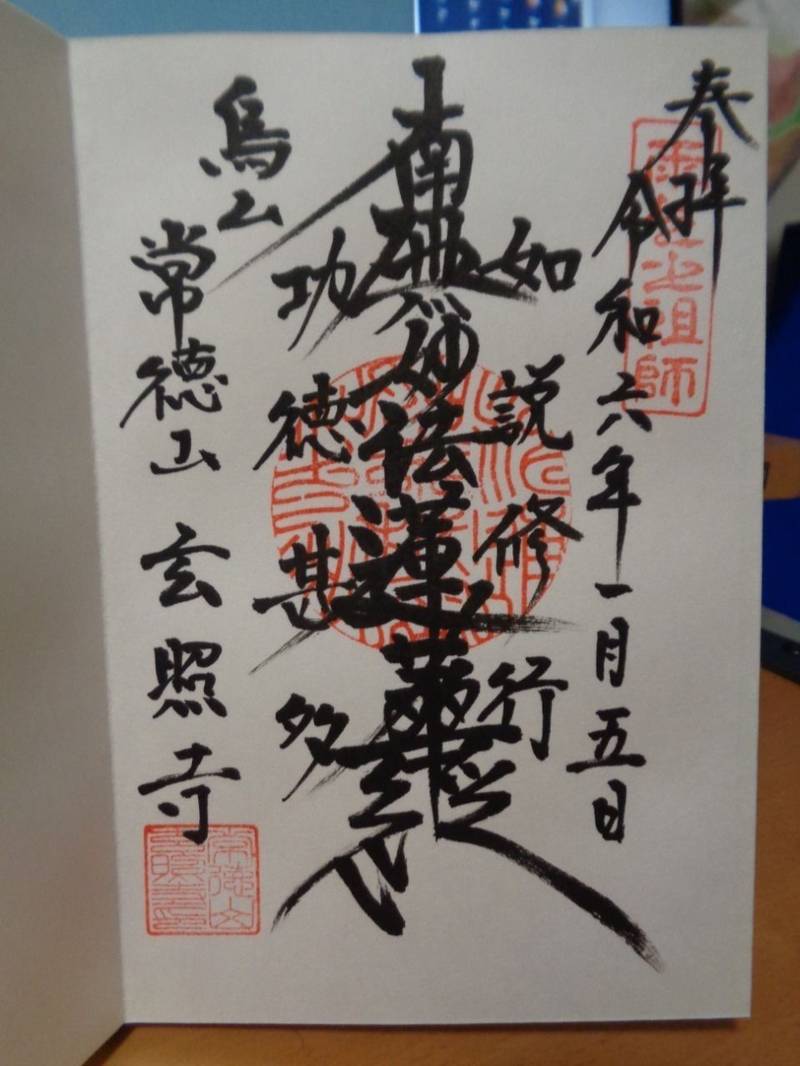 奉拝
令和六年一月五日
如説修行
南無妙法蓮華経
功徳甚多
烏山
常徳山 玄照寺